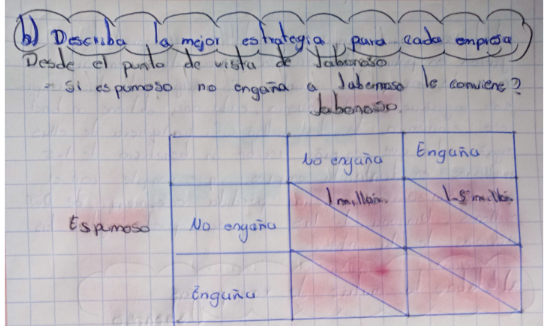 b) Describa la mejor estrategia para cada empresa
Desde el punto de vista de Jabonoso
- Si espumoso no engaña a Jabonoso le conviene?
Jabonoso.
No engaña Engaña
1 millón. 1.5 millón.
Espumoso No engaña
Engaña